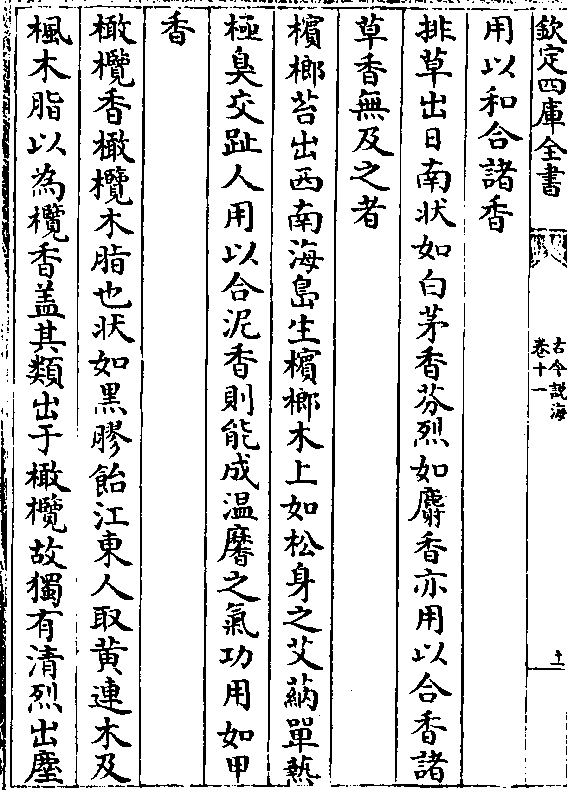 欽定四庫全書
古今説海
卷十一
十一
用以和合諸香
排草出日南狀如白茅香芬烈如麝香亦用以合香諸
草香無及之者
檳榔苔出西南海島生檳榔木上如松身之艾蒳單爇
極臭交趾人用以合泥香則能成温黁之氣功用如甲
香
橄欖香橄欖木脂也狀如黑膠飴江東人取黄連木及
楓木脂以為欖香盖其類出于橄欖故獨有清烈出塵